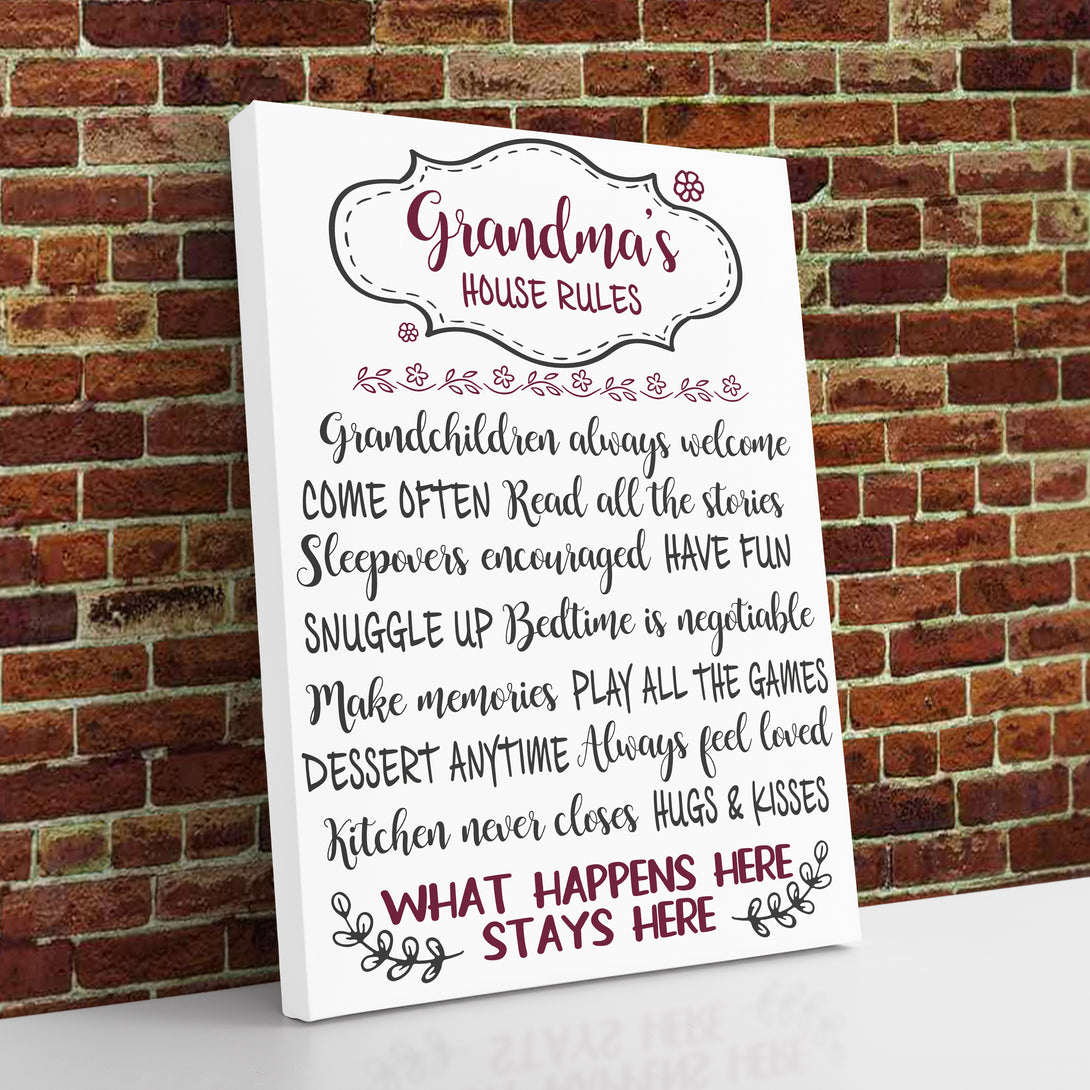 Grandma's
HOUSE RULES
Grandchildren always welcome
COME OFTEN Read all the stories
Sleepovers encouraged HAVE FUN
SNUGGLE UP Bedtime is negotiable
Make memories PLAY ALL THE GAMES
DESSERT ANYTIME Always feel loved
Kitchen never closes HUGS & KISSES
WHAT HAPPENS HERE
STAYS HERE